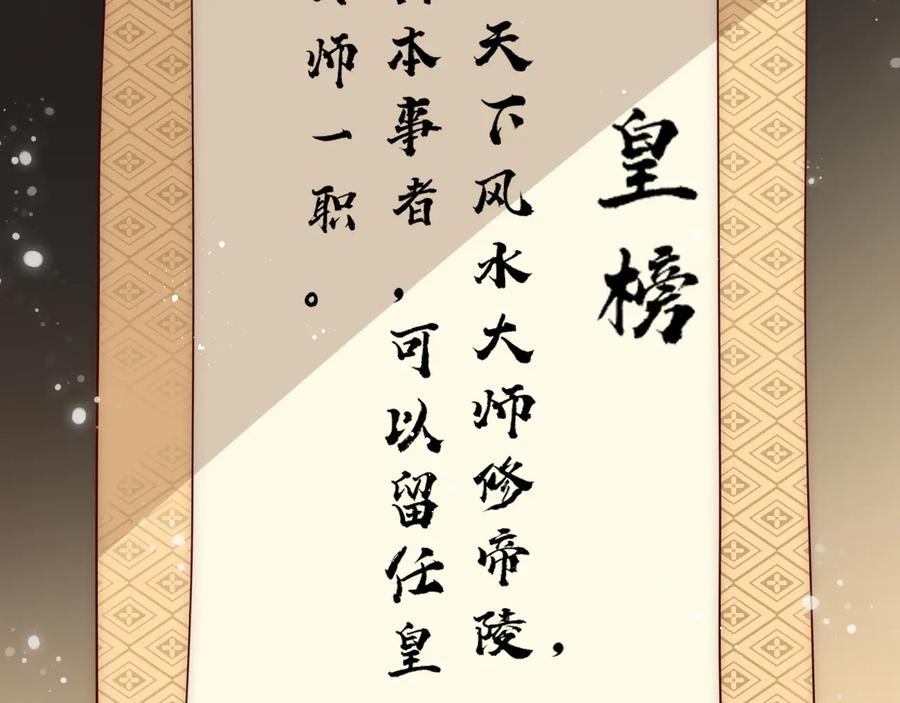 皇榜
天下风水大师修帝陵，
本事者，可以留任皇
师一职。